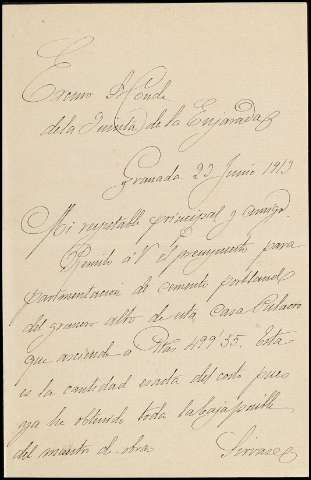 Excmo Sr Conde
de la Quinta de la Enjarada
Granada 23 Junio 1913
Mi respetable principal y amigo:
Remito á V el presupuesto para
pavimentacion de cemento portland
del granero alto de esta Casa Palacio
que asciende a Ptas 499'55. Esta
es la cantidad exacta del costo pues
ya he obtenido toda la baja posible
del maestro de obras. Sirvase